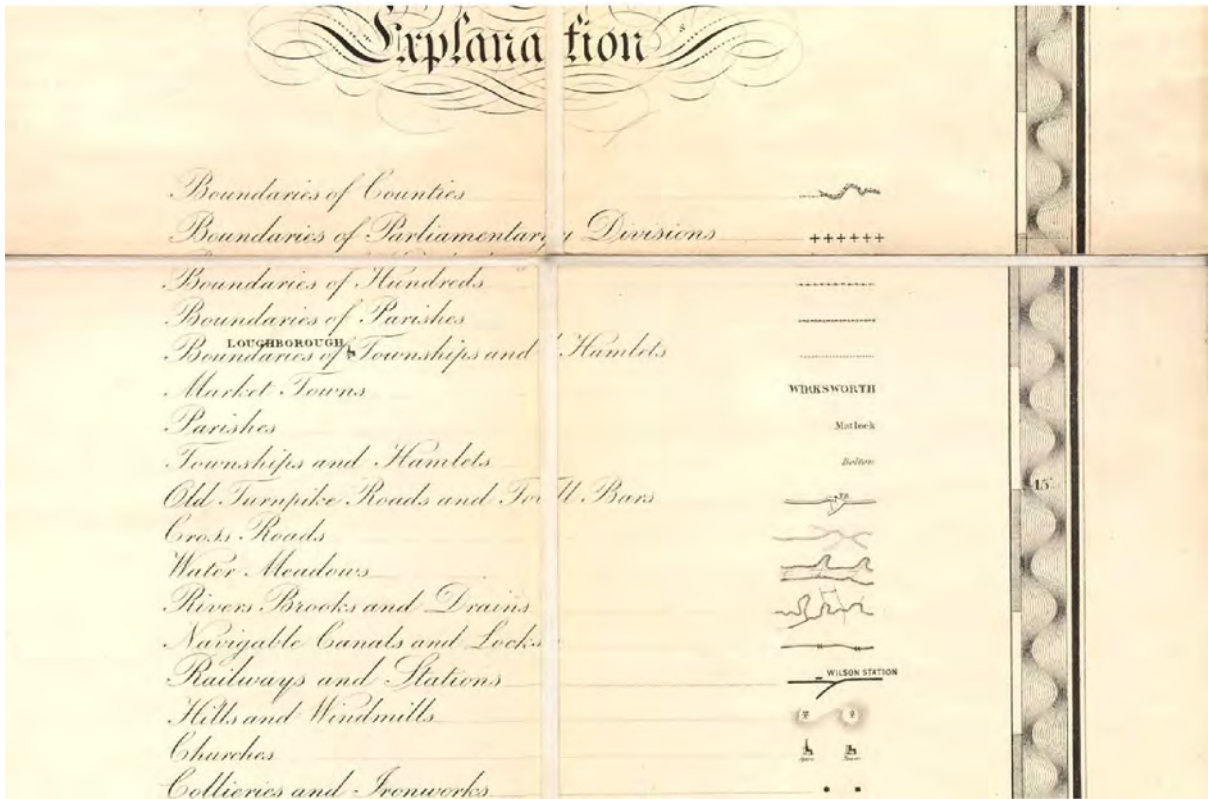 Explanation
Boundaries of Counties
Boundaries of Parliamentary Divisions ++++++
Boundaries of Hundreds
Boundaries of Parishes
LOUGHBOROUGH
Boundaries of Townships and Hamlets
Market Towns WIRKSWORTH
Parishes Matlock
Townships and Hamlets Bolton
Old Turnpike Roads and Toll Bars
15'
Cross Roads
Water Meadows
Rivers Brooks and Drains
Navigable Canals and Locks
Railways and Stations WILSON STATION
Hills and Windmills
Churches
Collieries and Ironworks